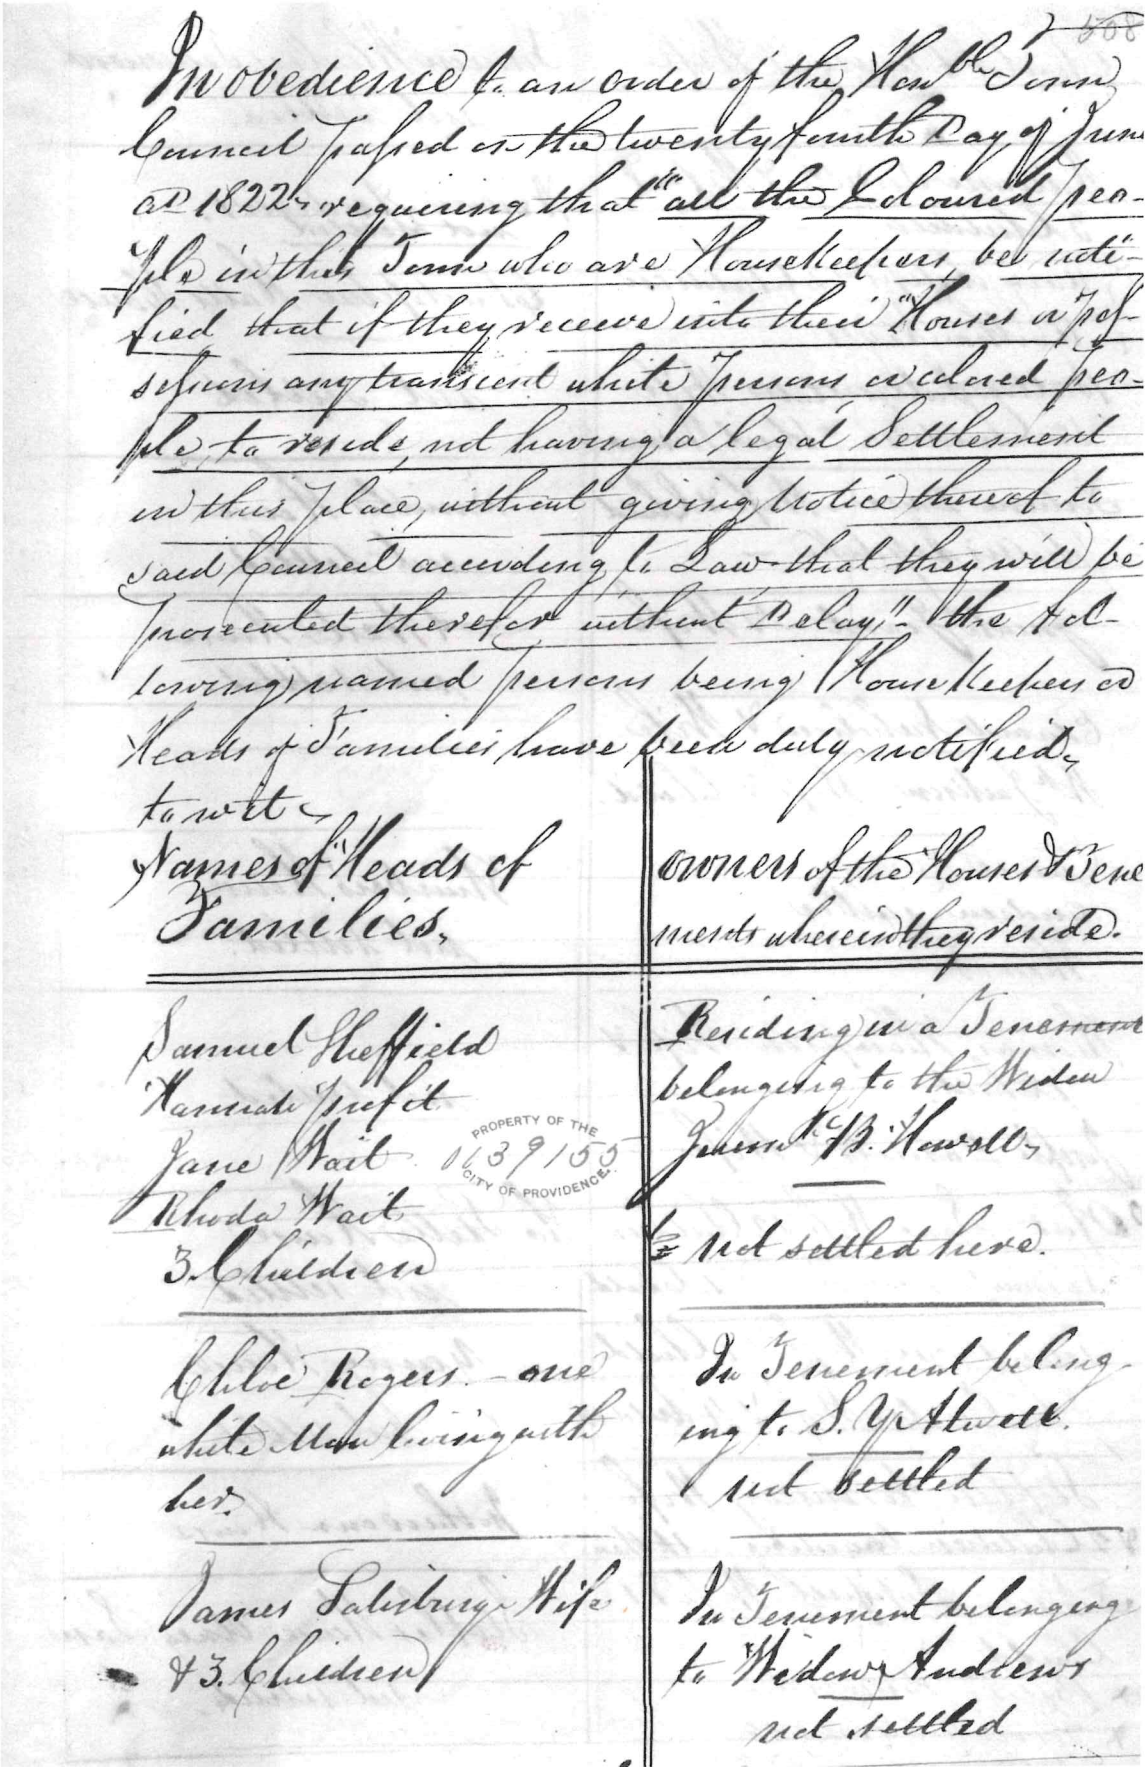 508
In obedience to an order of the Honble Town
Council passed on the twenty fourth Day of June
AD 1822, requiring that "all the Coloured peo-
ple in this Town who are Housekeepers, be noti-
fied that if they receive into their Houses or pos-
sessions any transient white persons or colored peo-
ple to reside, not having a legal Settlement
in this place, without giving Notice thereof to
said Council according to Law that they will be
prosecuted therefor without Delay"- the fol-
lowing named persons being House Keepers or
Heads of Families have been duly notified,
to wit
Names of Heads of
Families,
owners of the Houses & Tene
ments wherein they reside.
Samuel Sheffield
Hannah
Jane Wait
Rhoda Wait
3. Children
Residing in a Tenement
belonging to the Widow
B. Howell,
not settled here.
PROPERTY OF THE
0139155
CITY OF PROVIDENCE.
Chloe Rogers - one
white Man living with
her.
In Tenement belong-
ing to S. Y. Atwell.
not settled
James Salisbury Wife
& 3. Children
In Tenement belonging
to Widow Andrews
not settled